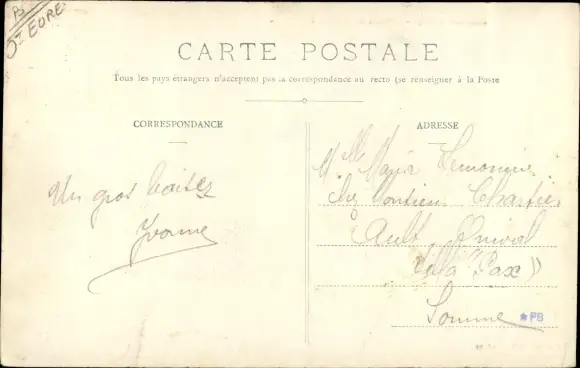 B
DT EURE
CARTE POSTALE
Tous les pays étrangers n'acceptent pas la correspondance au recto (se renseigner à la Poste
CORRESPONDANCE
ADRESSE
Un gros baiser
Yvonne
Mlle Maria Lemonnier
chez Monsieur Chartier
à Ault Onival
Villa "Pax"
Somme
*PB